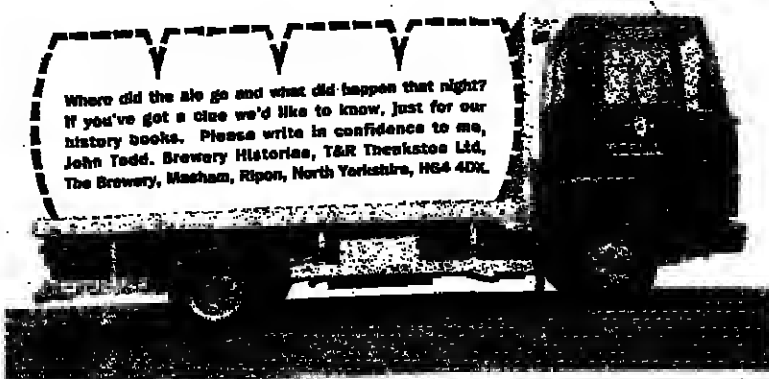 Where did the ale go and what did happen that night?
If you've got a clue we'd like to know, just for our
history books. Please write in confidence to me,
John Todd. Brewery Histories, T&R Theakston Ltd,
The Brewery, Masham, Ripon, North Yorkshire, HG4 4DX.